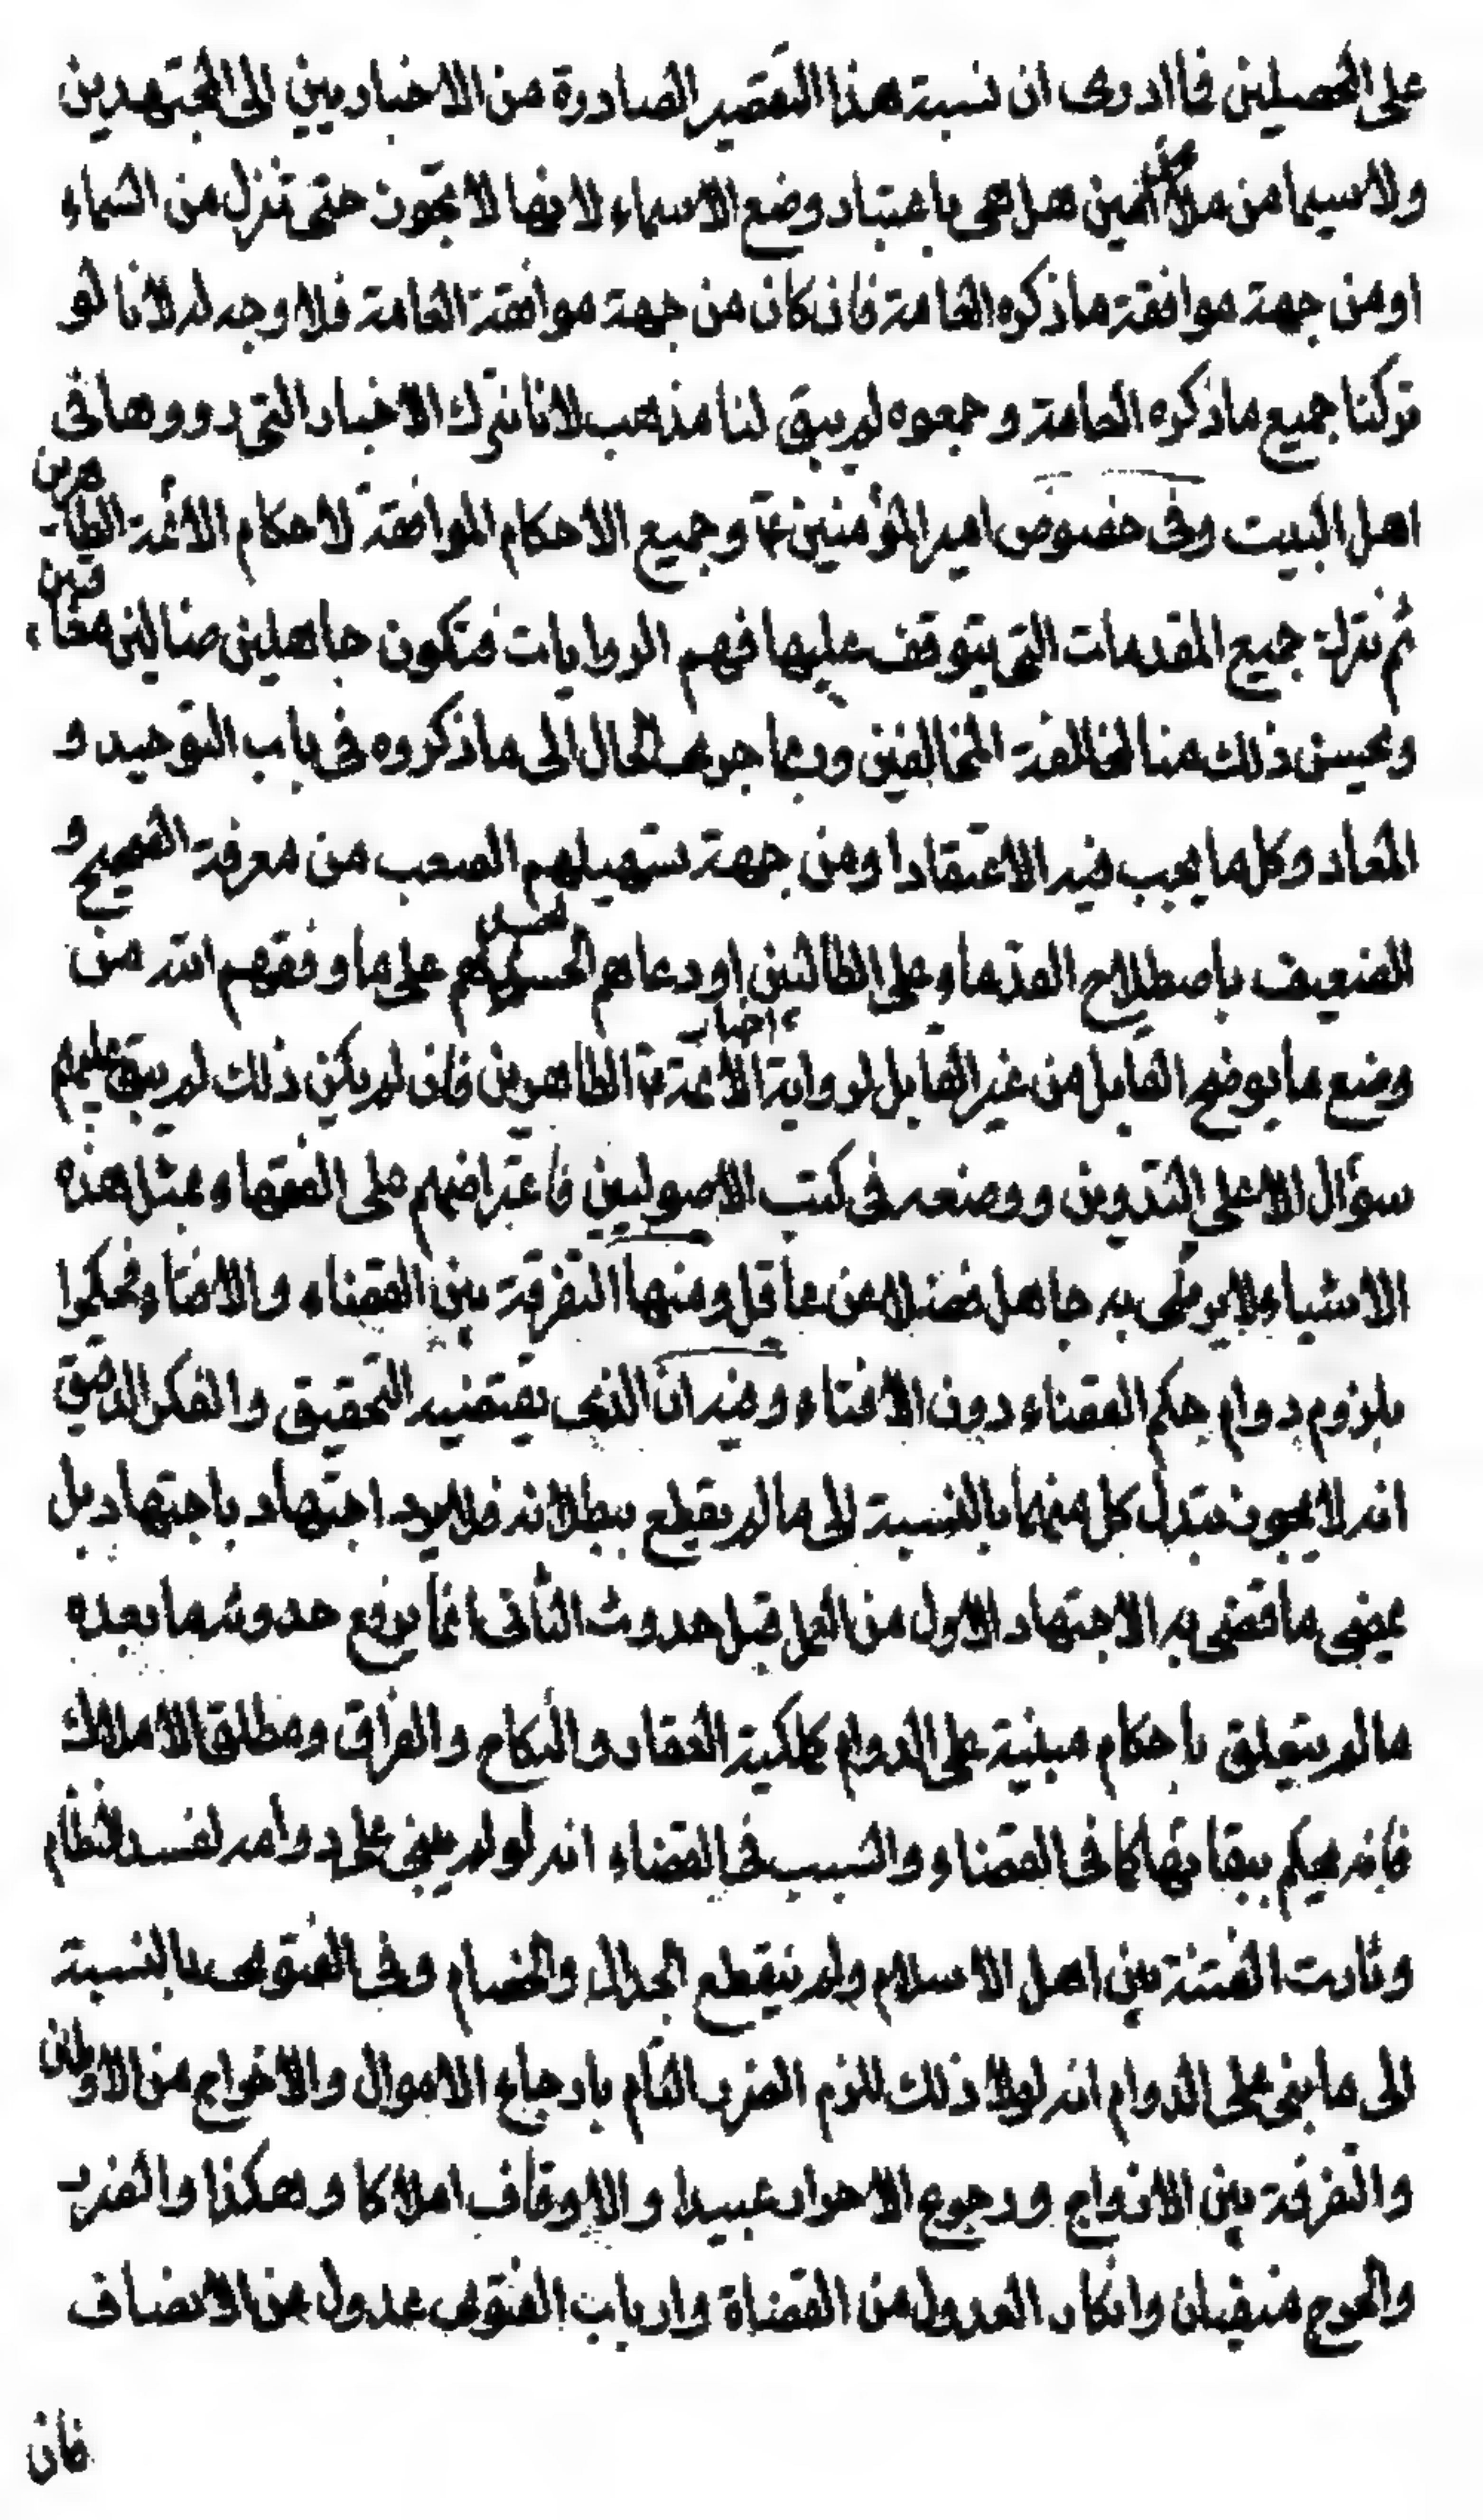 على المحصلين فما ادرى ان نسبة هذا التقصير الصادرة من الاخباريين الى المجتهدين
ولا سيما من ملا محسن هل هى باعتبار وضع الاسماء لانها لا تجوز حتى تنزل من السماء
او من جهة موافقة ما ذكره العامة فان كان من جهة موافقة العامة فلا وجه له لانا لو
تركنا جميع ما ذكره العامة وجمعوه لم يبق لنا مذهب لانا نترك الاخبار التى رووها فى
اهل البيت وفى خصوص امير المؤمنين ع وجميع الاحكام الموافقة لاحكام الائمة الطاهرين
ثم نترك جميع المقدمات التى يتوقف عليها فهم الروايات فنكون جاهلين ضالين
ويحسن ذلك منا لمخالفة المخالفين وربما جرى الحال الى ما ذكروه فى باب التوحيد و
المعاد وكل ما يجب فيه الاعتقاد او من جهة تسهيلهم الصعب من معرفة الصحيح و
الضعيف باصطلاح القدماء على الطالبين او دعاهم الحسد لهم على ما وفقهم الله من
وضع ما يوضح القابل من غير القابل لرواية اخبار الائمة الطاهرين فان لم يكن ذلك لم يبق عليهم
سؤال الا على التدوين ووضعه فى كتب الاصوليين فاعتراضهم على الفقهاء بمثل هذه
الاشياء لا يرضى به جاهل فضلا عن عاقل ومنها التفرقة بين القضاء والافتاء فحكموا
بلزوم دوام حكم القضاء دون الافتاء وفيه ان الذى يقتضيه التحقيق والفكر الدقيق
انه لا يجوز تبدل كل منهما بالنسبة الى ما لم يقطع ببطلانه فلا يرد اجتهاد باجتهاد بل
يمضى ما قضى به الاجتهاد الاول من العمل قبل حدوث الثانى انما يرفع حدوثه ما بعده
ما لم يتعلق باحكام مبنية على الدوام كملكية العقار والنكاح والفراق ومطلق الاملاك
فانه يحكم ببقائها كما فى القضاء والسبب فى القضاء انه لو لم يبنى على دوامه لفسد النظام
وثارت الفتنة بين اهل الاسلام ولم ينقطع الجدال والخصام وفى الفتوى بالنسبة
الى ما بنى على الدوام انه لولا ذلك للزم الضرر التام بارجاع الاموال والاخراج من الاوطان
والتفرقة بين الازواج ورجوع الاحرار عبيدا والاوقاف املاكا وهكذا والضرر
والحرج منفيان وانكار العدول من القضاة وارباب الفتوى عدول عن الانصاف
فان